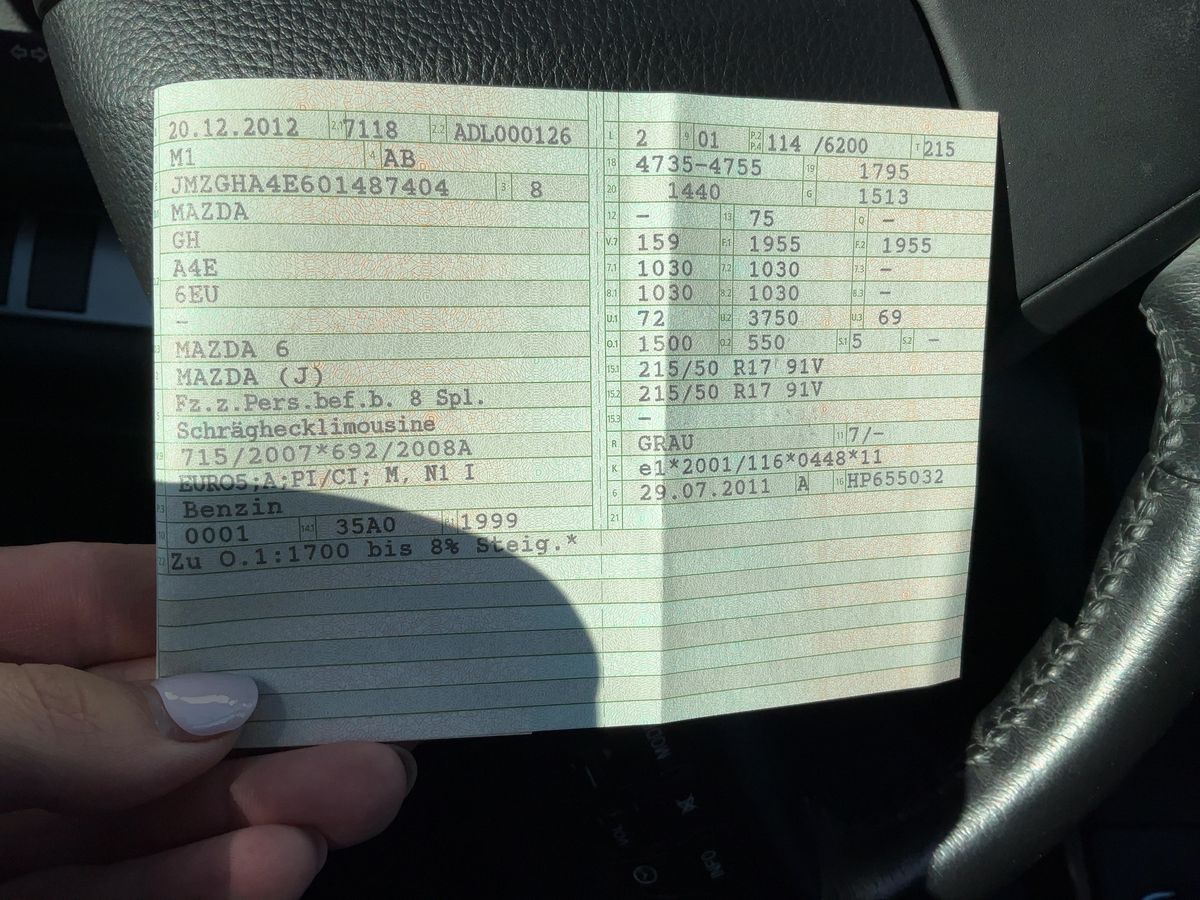 20.12.2012 2.1 7118 2.2 ADL000126
M1 4 AB
JMZGHA4E601487404 3 8
MAZDA
GH
A4E
6EU
–
MAZDA 6
MAZDA (J)
Fz.z.Pers.bef.b. 8 Spl.
Schräghecklimousine
715/2007*692/2008A
EURO5;A;PI/CI; M, N1 I
P.3 Benzin
10 0001 14.1 35A0 1999
22 Zu O.1:1700 bis 8% Steig.*
L 2 9 01 P.2 P.4 114 /6200 T 215
18 4735-4755 19 1795
20 1440 G 1513
12 – 13 75 Q –
V.7 159 F.1 1955 F.2 1955
7.1 1030 7.2 1030 7.3 –
8.1 1030 8.2 1030 8.3 –
U.1 72 U.2 3750 U.3 69
O.1 1500 O.2 550 S.1 5 S.2 –
15.1 215/50 R17 91V
15.2 215/50 R17 91V
15.3 –
R GRAU 11 7/-
K e1*2001/116*0448*11
6 29.07.2011 A 16 HP655032
21
MODE
VOL
INFO